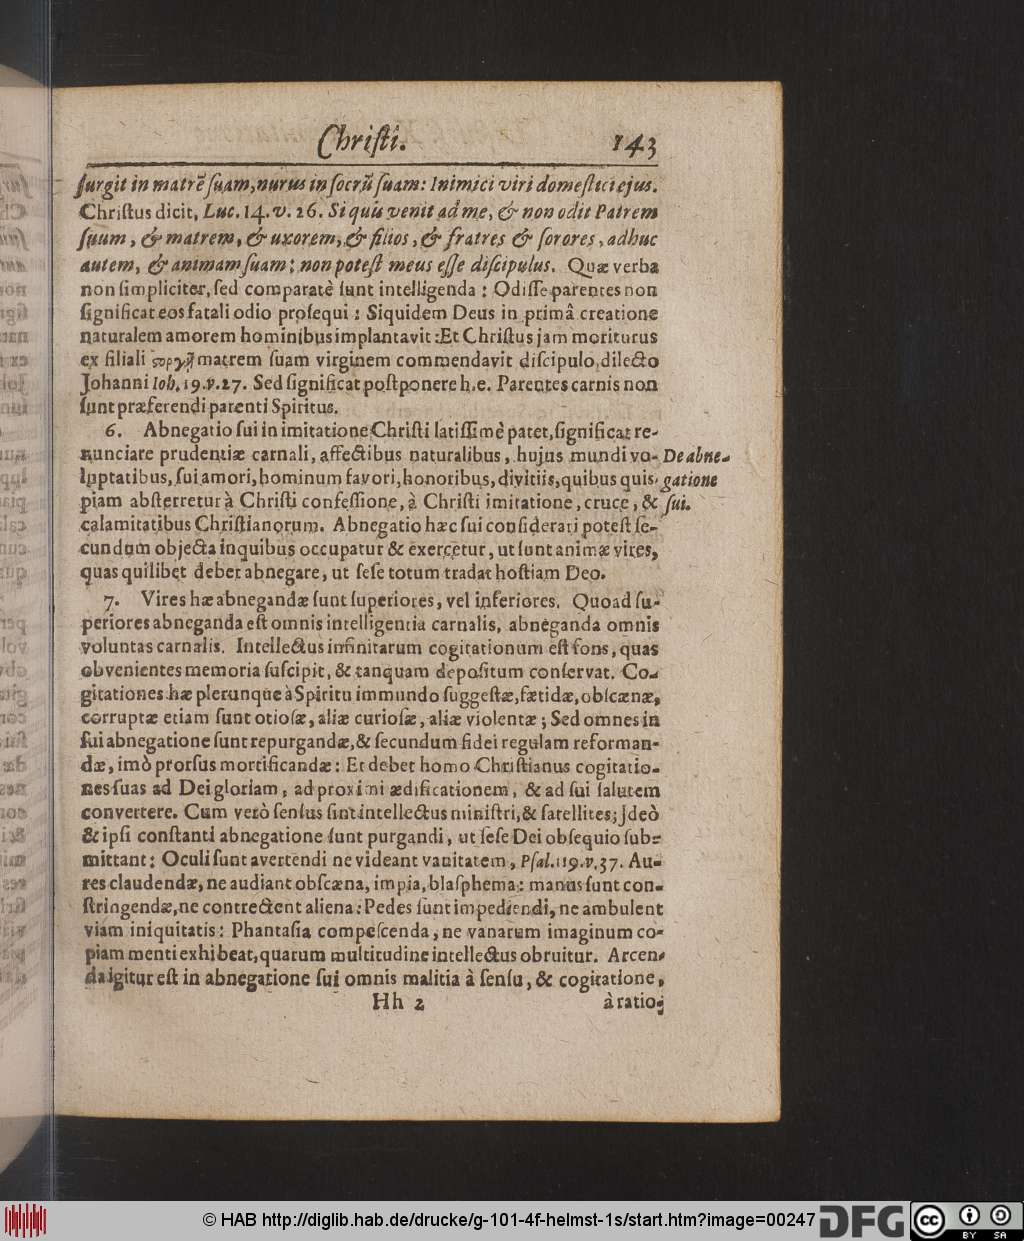 Chriſti. 143
ſurgit in matrē ſuam, nurus in ſocrū ſuam: Inimici viri domeſtici ejus.
Chriſtus dicit, Luc. 14. v. 26. Si quis venit ad me, & non odit Patrem
ſuum, & matrem, & uxorem, & filios, & fratres & ſorores, adhuc
autem, & animam ſuam; non poteſt meus eſſe diſcipulus. Quæ verba
non ſimpliciter, ſed comparatè ſunt intelligenda: Odiſſe parentes non
ſignificat eos fatali odio proſequi: Siquidem Deus in primâ creatione
naturalem amorem hominibus implantavit: Et Chriſtus jam moriturus
ex filiali ςοργῇ matrem ſuam virginem commendavit diſcipulo dilecto
Johanni Ioh. 19. v. 27. Sed ſignificat poſtponere h.e. Parentes carnis non
ſunt præferendi parenti Spiritus.
6. Abnegatio ſui in imitatione Chriſti latiſſimè patet, ſignificat re-
nunciare prudentiæ carnali, affectibus naturalibus, hujus mundi vo- De abne-
luptatibus, ſui amori, hominum favori, honoribus, divitiis, quibus quis- gatione
piam abſterretur à Chriſti confeſſione, à Chriſti imitatione, cruce, & ſui.
calamitatibus Chriſtianorum. Abnegatio hæc ſui conſiderari poteſt ſe-
cundum objecta in quibus occupatur & exercetur, ut ſunt animæ vires,
quas quilibet debet abnegare, ut ſeſe totum tradat hoſtiam Deo.
7. Vires hæ abnegandæ ſunt ſuperiores, vel inferiores. Quoad ſu-
periores abneganda eſt omnis intelligentia carnalis, abneganda omnis
voluntas carnalis. Intellectus infinitarum cogitationum eſt fons, quas
obvenientes memoria ſuſcipit, & tanquam depoſitum conſervat. Co-
gitationes hæ plerunque à Spiritu immundo ſuggeſtæ, fætidæ, obſcænæ,
corruptæ etiam ſunt otioſæ, aliæ curioſæ, aliæ violentæ; Sed omnes in
ſui abnegatione ſunt repurgandæ, & ſecundum fidei regulam reforman-
dæ, imò prorſus mortificandæ: Et debet homo Chriſtianus cogitatio-
nes ſuas ad Dei gloriam, ad proximi ædificationem, & ad ſui ſalutem
convertere. Cum verò ſenſus ſint intellectus miniſtri, & ſatellites; Jdeò
& ipſi conſtanti abnegatione ſunt purgandi, ut ſeſe Dei obſequio ſub-
mittant: Oculi ſunt avertendi ne videant vanitatem, Pſal. 119. v. 37. Au-
res claudendæ, ne audiant obſcæna, impia, blaſphema: manus ſunt con-
ſtringendæ, ne contrectent aliena: Pedes ſunt impediendi, ne ambulent
viam iniquitatis: Phantaſia compeſcenda, ne vanarum imaginum co-
piam menti exhibeat, quarum multitudine intellectus obruitur. Arcen-
da igitur eſt in abnegatione ſui omnis malitia à ſenſu, & cogitatione,
Hh 2 à ratio-
© HAB http://diglib.hab.de/drucke/g-101-4f-helmst-1s/start.htm?image=00247 DFG CC BY SA